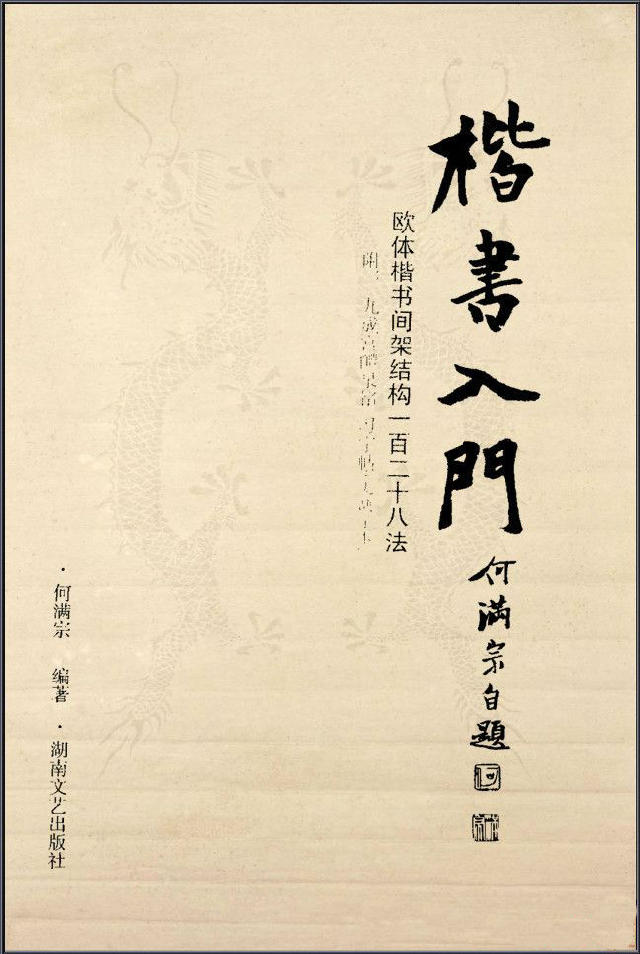 楷書入門
何满宗自題
欧体楷书间架结构一百二十八法
附：九成宫醴泉铭
·何满宗 编著·湖南文艺出版社